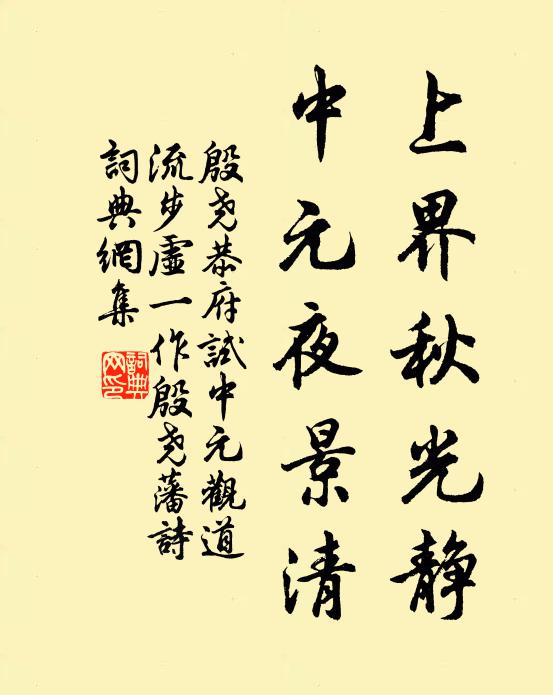 上界秋光静
中元夜景清
殷尧恭府試中元觀道
流步虛一作殷尧藩詩
詞典網集
詞典網印